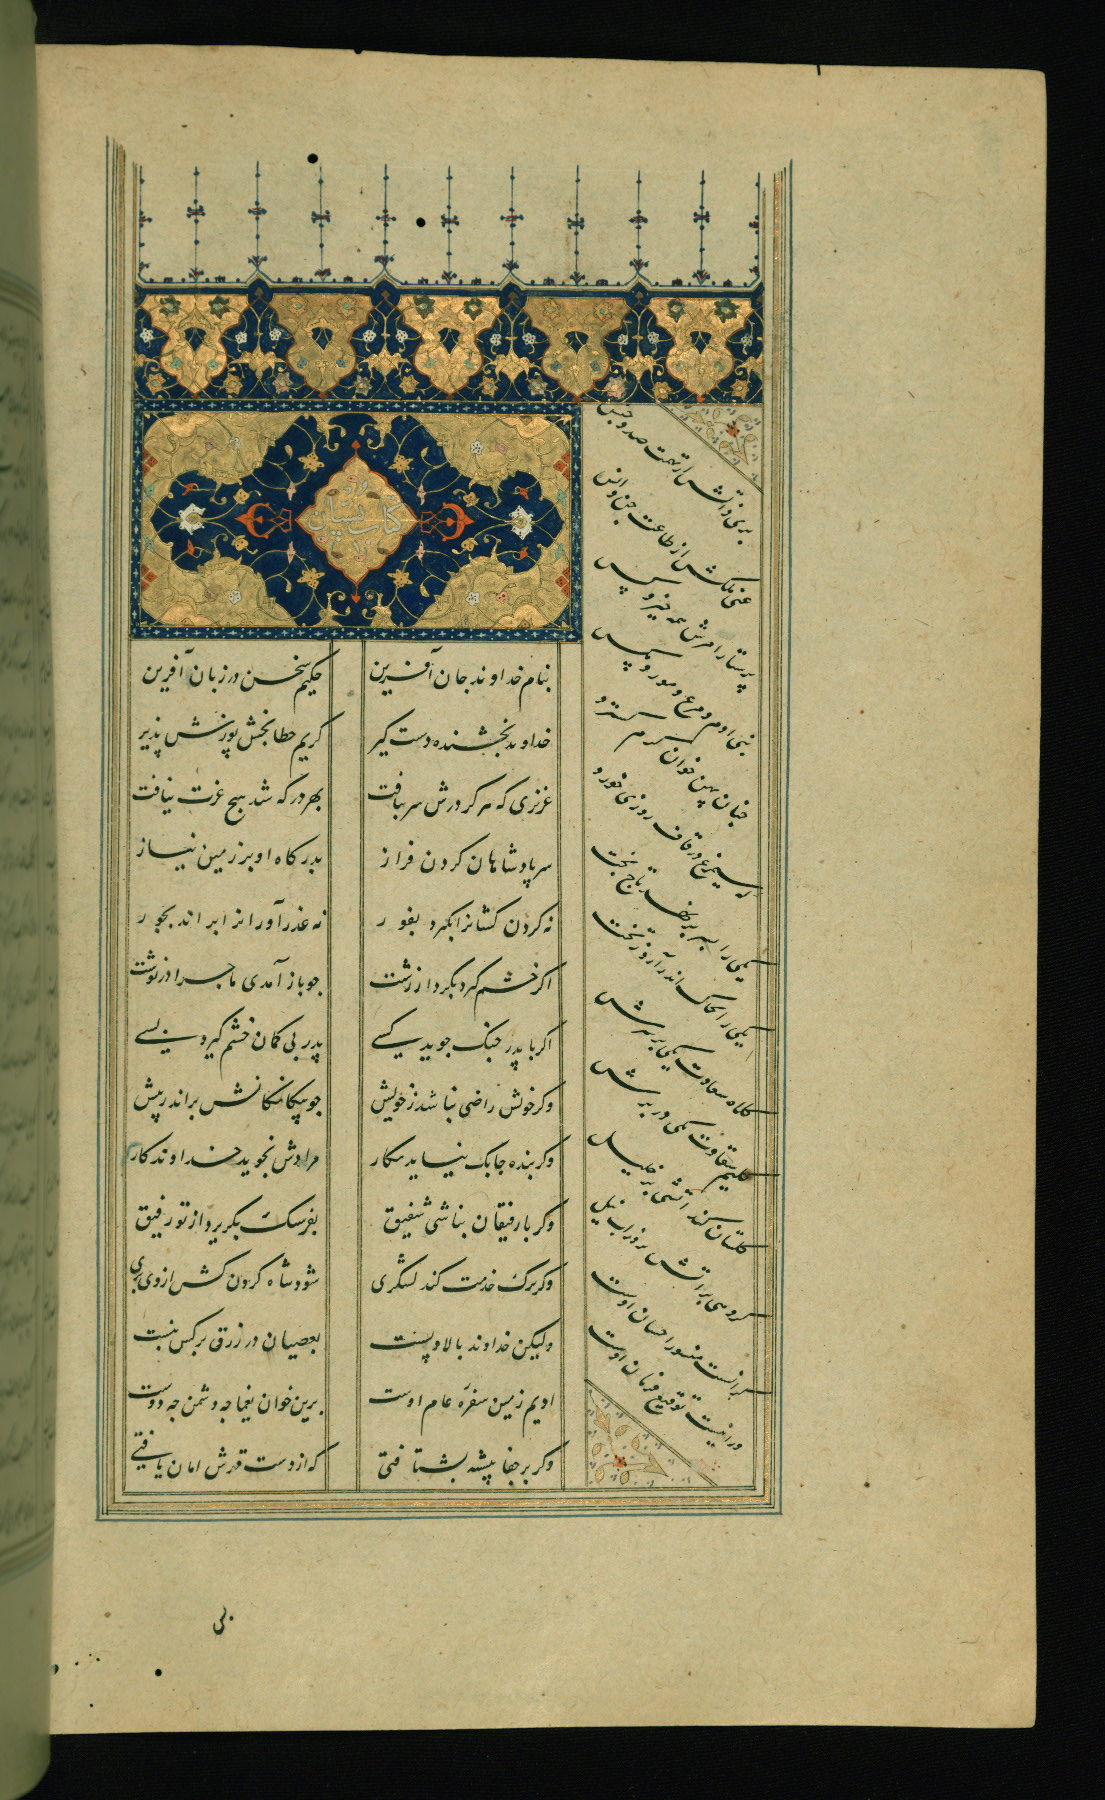 کتاب بستان
بنام خداوند جان آفرین حکیم سخن در زبان آفرین
خداوند بخشنده دست کیر کریم خطا بخش پوزش پذیر
عزیزی که هر کز درش سر بتافت بهر در که شد هیچ عزت نیافت
سر پادشاهان کردن فراز بدرکاه او بر زمین نیاز
نه کردن کشانرا بکیرد بفور نه عذر آورانرا براند بجور
اکر خشم کیرد بکردار زشت چو باز آمدی ماجرا در نوشت
اکر با پدر جنک جوید کسی پدر بی کمان خشم کیرد بسی
وکر خویش راضی نباشد ز خویش چو بیکانکانش براند ز پیش
وکر بنده چابک نیاید بکار مرادش نجوید خداوند کار
وکر با رفیقان نباشی شفیق بفرسنک بکریزد از تو رفیق
وکر ترک خدمت کند لشکری شود شاه کردن کش از وی بری
ولیکن خداوند بالا و پست بعصیان در رزق بر کس نبست
ادیم زمین سفره عام اوست برین خوان یغما چه دشمن چه دوست
وکر بر جفا پیشه بشتافتی که از دست قهرش امان یافتی
بری ذاتش از تهمت ضد و جنس
غنی ملکش از طاعت جن و انس
پرستار امرش همه چیز و کس
بنی آدم و مرغ و مور و مکس
چنان پهن خوان کرم کسترد
که سیمرغ در قاف روزی خورد
یکی را بسر بر نهد تاج بخت
یکی را بخاک اندر آرد ز تخت
کلاه سعادت یکی بر سرش
کلیم شقاوت یکی در برش
کلستان کند آتشی بر خلیل
کروهی بر آتش برد ز آب نیل
کر آنست منشور احسان اوست
ور اینست توقیع فرمان اوست